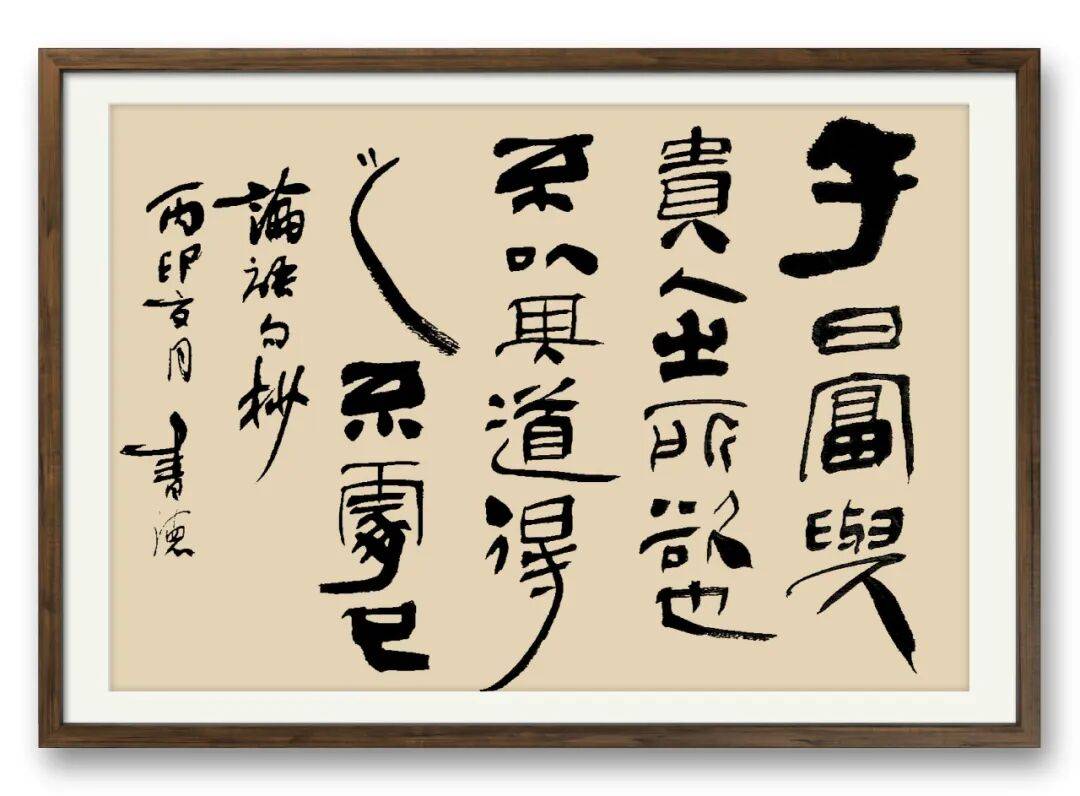 子曰富與
貴人之所欲也
不以其道得
之不處已
論語句抄
丙亥月 書德